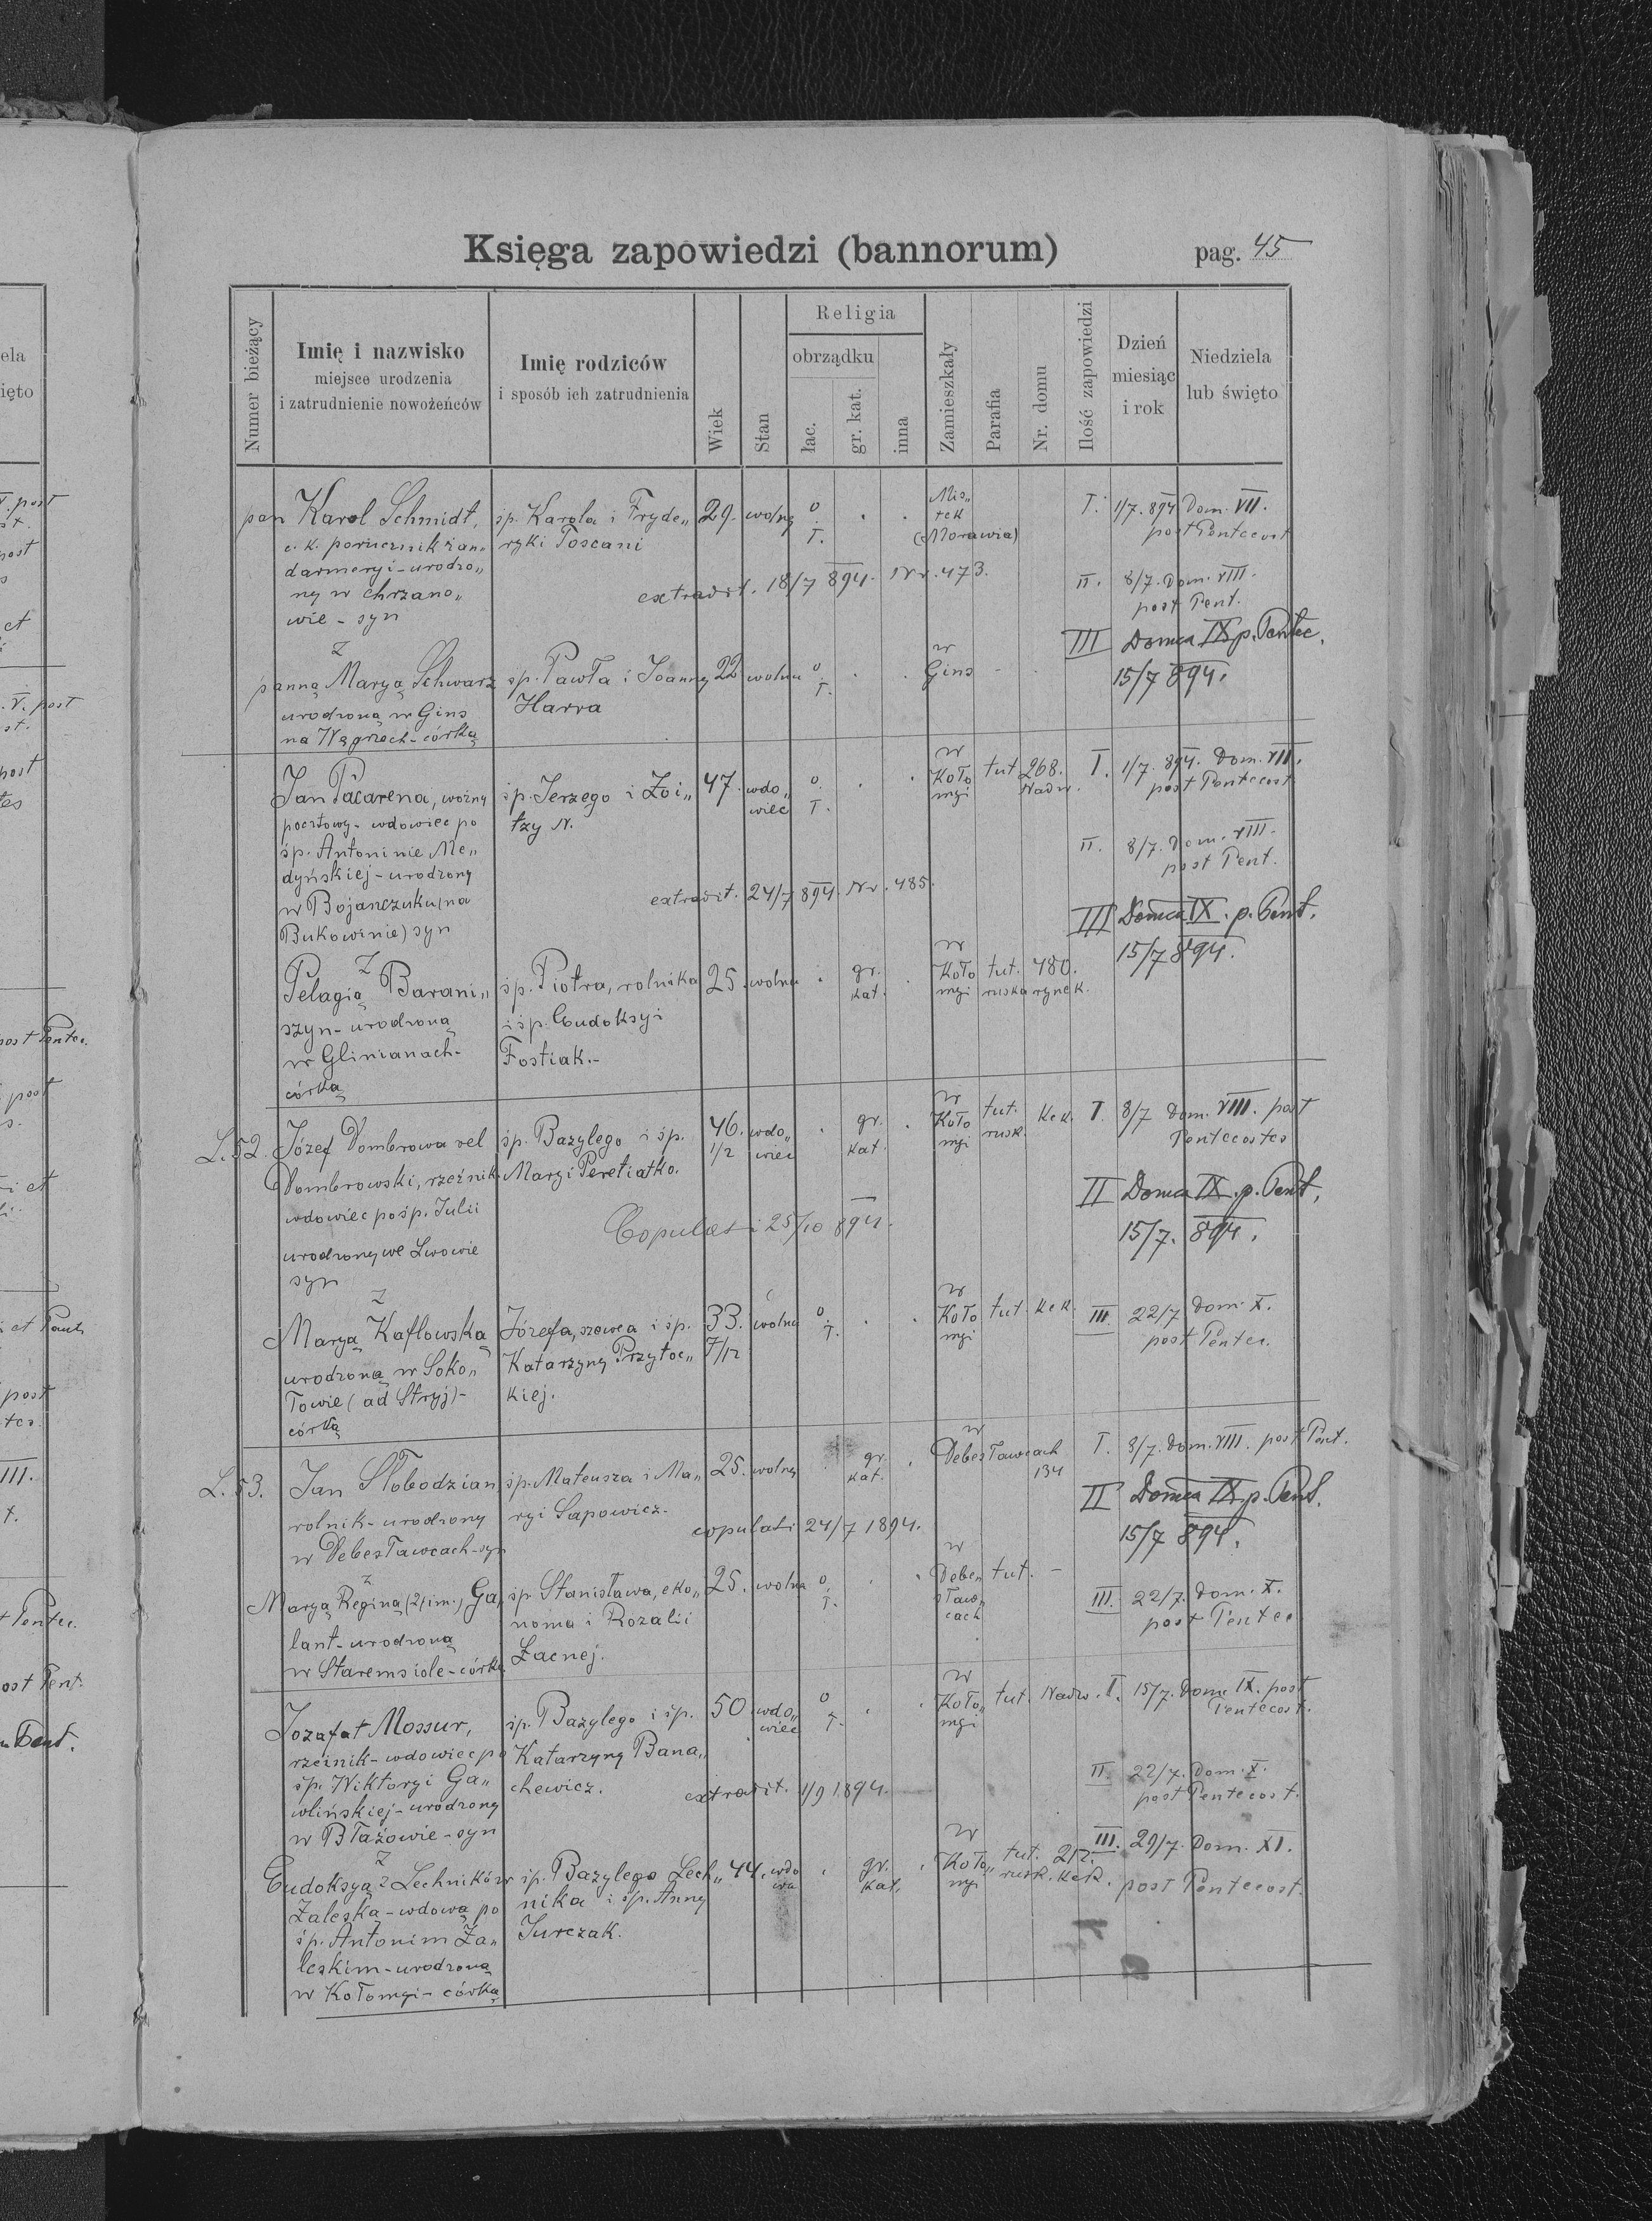 Księga zapowiedzi (bannorum) pag. 45
Numer bieżący
Imię i nazwisko
miejsce urodzenia
i zatrudnienie nowożeńców
Imię rodziców
i sposób ich zatrudnienia
Wiek
Stan
Religia
obrządku
łac.
gr. kat.
inna
Zamieszkały
Parafia
Nr. domu
Ilość zapowiedzi
Dzień
miesiąc
i rok
Niedziela
lub święto
pan Karol Schmidt,
c. k. porucznik żan„
darmeryi - urodzo„
ny w Chrzano„
wie - syn
śp. Karola i Fryde„
ryki Toscani
29. wolny o. ł. . .
Mis„
tek
(Morawia)
I. 1/7. 894 Dom. VII.
post Pentecost
extradit. 18/7 894. Nr. 473.
II. 8/7. Dom. VIII.
post Pent.
III Domca IX p. Pentec.
15/7 894.
z
panną Maryą Schwarz
urodzoną w Gins
na Węgrzech - córką
śp. Pawła i Joanny
Harra
22 wolna o. ł. . .
w
Gins -
Jan Pacarena, woźny
pocztowy - wdowiec po
śp. Antoninie Me„
dyńskiej - urodzony
w Bojanczuku (na
Bukowinie) syn
śp. Jerzego i Zoi„
tzy N.
47. wdo„
wiec
o. ł. . .
w
Koło
myi
tut 268.
Nadw.
I. 1/7. 894. Dom. VII.
post Pentecost
II. 8/7. Dom. VIII.
post Pent.
extradit. 24/7 894. Nr. 485.
III Domca IX. p. Pent.
15/7 894.
z
Pelagią Barani„
szyn - urodzoną
w Glinianach -
córką
śp. Piotra, rolnika
i śp. Eudoksyi
Fostiak. -
25. wolna . gr.
kat. .
w
Koło
myi
tut. 480.
ruska rynek.
L. 52. Józef Dombrowa vel
Dombrowski, rzeźnik
wdowiec po śp. Julii
urodzony we Lwowie
syn
śp. Bazylego i śp.
Maryi Peretiatko.
46.
1/2
wdo„
wiec
. gr.
kat. .
w
Koło
myi
tut.
rusk.
Kek.
I. 8/7 Dom. VIII. post
Pentecostes
II Domca IX. p. Pent,
15/7. 894.
Copulati 25/10 894.
z
Maryą Kaflowską
urodzoną w Soko„
łowie (ad Stryj) -
córką
Józefa, szewca i śp.
Katarzyny Przyłoc„
kiej.
33.
7/12
wolna o. ł. . .
w
Koło
myi
tut. Kek.
III. 22/7 Dom. X.
post Pentec.
L. 53. Jan Słobodzian
rolnik - urodzony
w Debesławcach - syn
śp. Mateusza i Ma„
ryi Sapowicz.
25. wolny . gr.
kat. .
w
Debesławcach
134
I. 8/7. Dom. VIII. post Pent.
II Domca IX p. Pent.
15/7 894.
copulati 24/7 1894.
z
Maryą Reginą (2 im.) Ga„
lant - urodzoną
w Staremsiole - córką
śp. Stanisława, eko„
noma i Rozalii
Łacnej.
25. wolna o. ł. . .
w
Debe„
sław„
cach
tut. -
III. 22/7. Dom. X.
post Pentec
Jozafat Mossur,
rzeźnik - wdowiec po
śp. Wiktoryi Ga„
wlińskiej - urodzony
w Błażowie - syn
śp. Bazylego i śp.
Katarzyny Bana„
chewicz.
50 wdo„
wiec
o. ł. . .
w
Koło„
myi
tut. Nadw.
I. 15/7. Dom. IX. post
Pentecost.
II. 22/7. Dom. X.
post Pentecost.
extradit. 1/9 1894.
III. 29/7. Dom. XI.
post Pentecost.
z
Eudoksyą z Lechników
Zaleską - wdową po
śp. Antonim Za„
leskim - urodzoną
w Kołomyi - córką
śp. Bazylego Lech„
nika i śp. Anny
Jurczak.
44. wdo
wa
. gr.
kat. .
w
Koło„
myi
tut. 212.
rusk. Kek.